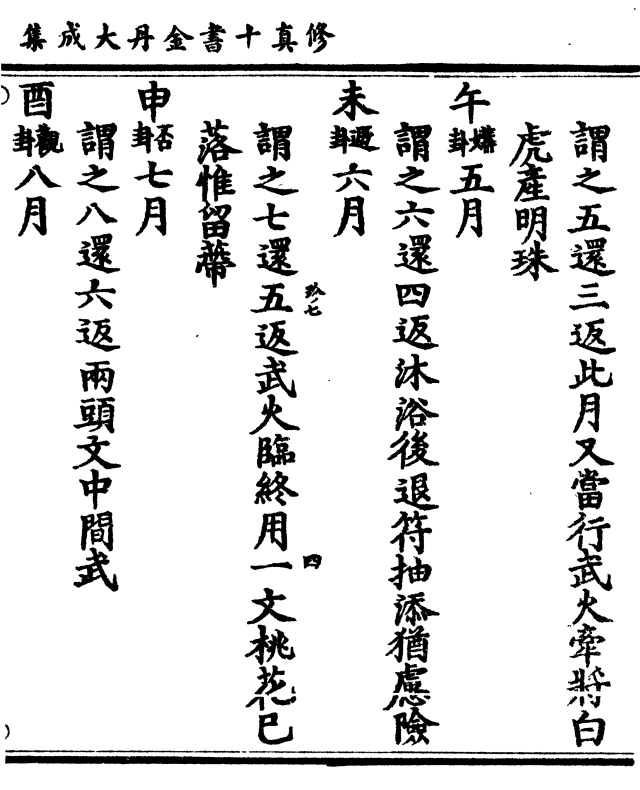 修真十書金丹大成集
謂之五還三返此月又當行武火牽將白
虎產明珠
午
姤卦
五月
謂之六還四返沐浴後退符抽添猶慮險
未
遯卦
六月
謂之七還五返武火臨終用一文桃花已
落惟留蔕
申
否卦
七月
謂之八還六返兩頭文中間武
酉
觀卦
八月
四